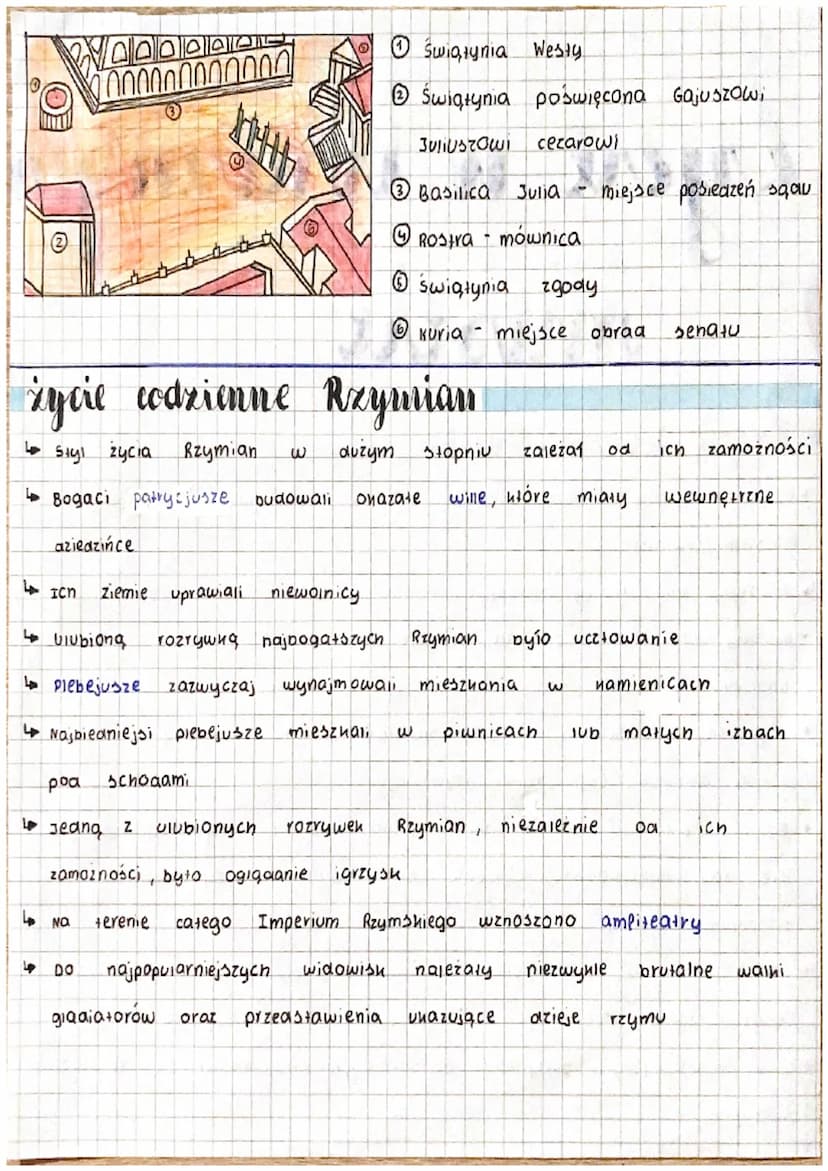 ① Świątynia Westy
② Świątynia poświęcona Gajuszowi
Juliuszowi cezarowi
③ Basilica Julia - miejsce posiedzeń sądu
④ Rostra - mównica
⑤ Świątynia zgody
⑥ Kuria - miejsce obrad senatu
1
3
5
4
2
6
życie codzienne Rzymian
↳ Styl życia Rzymian w dużym stopniu zależał od ich zamożności
↳ Bogaci patrycjusze budowali okazałe wille, które miały wewnętrzne
dziedzińce
↳ Ich ziemie uprawiali niewolnicy
↳ Ulubioną rozrywką najbogatszych Rzymian było ucztowanie
↳ Plebejusze zazwyczaj wynajmowali mieszkania w kamienicach
↳ Najbiedniejsi plebejusze mieszkali w piwnicach lub małych izbach
pod schodami
↳ Jedną z ulubionych rozrywek Rzymian, niezależnie od ich
zamożności, było oglądanie igrzysk
↳ Na terenie całego Imperium Rzymskiego wznoszono amfiteatry
↳ Do najpopularniejszych widowisk należały niezwykle brutalne walki
gladiatorów oraz przedstawienia ukazujące dzieje rzymu